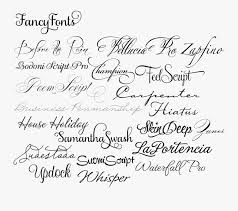 Fancy Fonts
Before the Rain Bellucia Pro Zapfino
Bodoni Script Pro Champion Fed Script
Poem Script Carpenter
Business Penmanship Hiatus
House Holiday Skin Deep
Samantha Swash La Portencia
Suomi Script Waterfall Pro
Updock Whisper